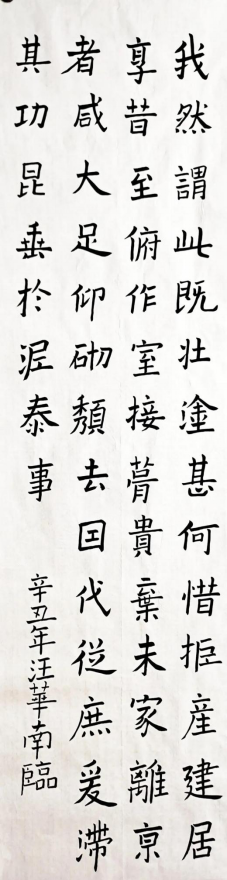 我然謂此既壯塗甚何惜拒產建居
享昔至俯作室接膏貴棄未家離京
者咸大足仰砌頹去囯代從庶爰滯
其功昆垂於泥泰事
辛丑年汪華南臨